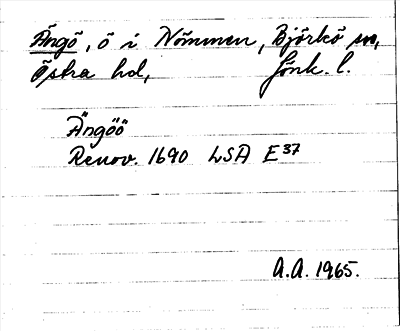 Ängö, ö i Nömmen, Björkö sn,
Östra hd, Jönk. l.
Ängöö
Renov. 1690 LSA E37
A.A. 1965.